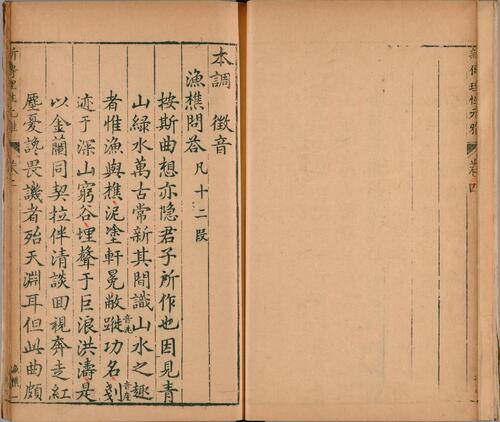 新傳理性元雅 卷四
本調 徵音
漁樵問荅 凡十二段
按斯曲想亦隐君子所作也因見青
山緑水萬古常新其間識山水之趣
者惟漁與樵泥塗軒冕敝蹝功名剗音產
迹于深山窮谷埋聲于巨浪洪濤是
以金蘭同契拉伴清談回視奔走紅
塵憂讒畏譏者殆天淵耳但此曲頗